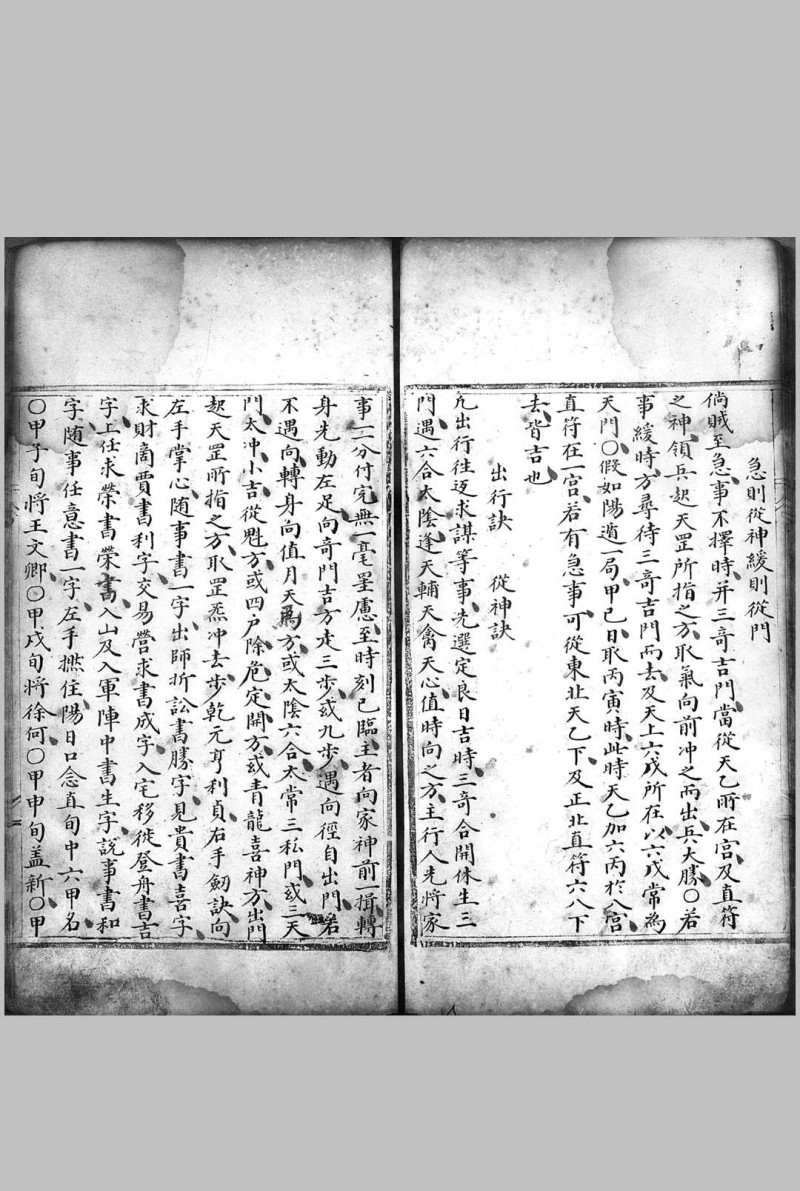 急則從神緩則從門
倘賊至急事不擇時并三竒吉門當從天乙所在宮及直符
之神領兵起天罡所指之方取氣向前冲之而出兵大勝〇若
事緩時方尋待三竒吉門而去及天上六戊所在以六戊常為
天門〇假如陽遁一局甲己日取丙寅時此時天乙加六丙於八宮
直符在一宮若有急事可從東北天乙下及正北直符六八下
去皆吉也
出行訣　從神訣
凢出行往返求謀等事先選定良日吉時三竒合開休生三
門遇六合太陰逢天輔天禽天心值時向之方主行人先將家
事一一分付完無一毫罣慮至時刻已臨主者向家神前一揖轉
身先動左足向竒門吉方走三步或九步遇向徑自出門若
不遇向轉身向值月天馬方或太陰六合太常三私門或三天
門太冲小吉從魁方或四户除危定開方或青龍喜神方出門
起天罡所指之方取罡炁冲去步乾元亨利貞右手劒訣向
左手掌心隨事書一字出師折訟書勝字見貴書喜字
求財商賈書利字交易營求書成字入宅移徙登舟書吉
字上任求榮書榮書入山及入軍陣中書生字說事書和
字隨事任意書一字左手撚住陽日口念直旬中六甲名
〇甲子旬將王文卿〇甲戌旬將徐何〇甲申旬盖新〇甲